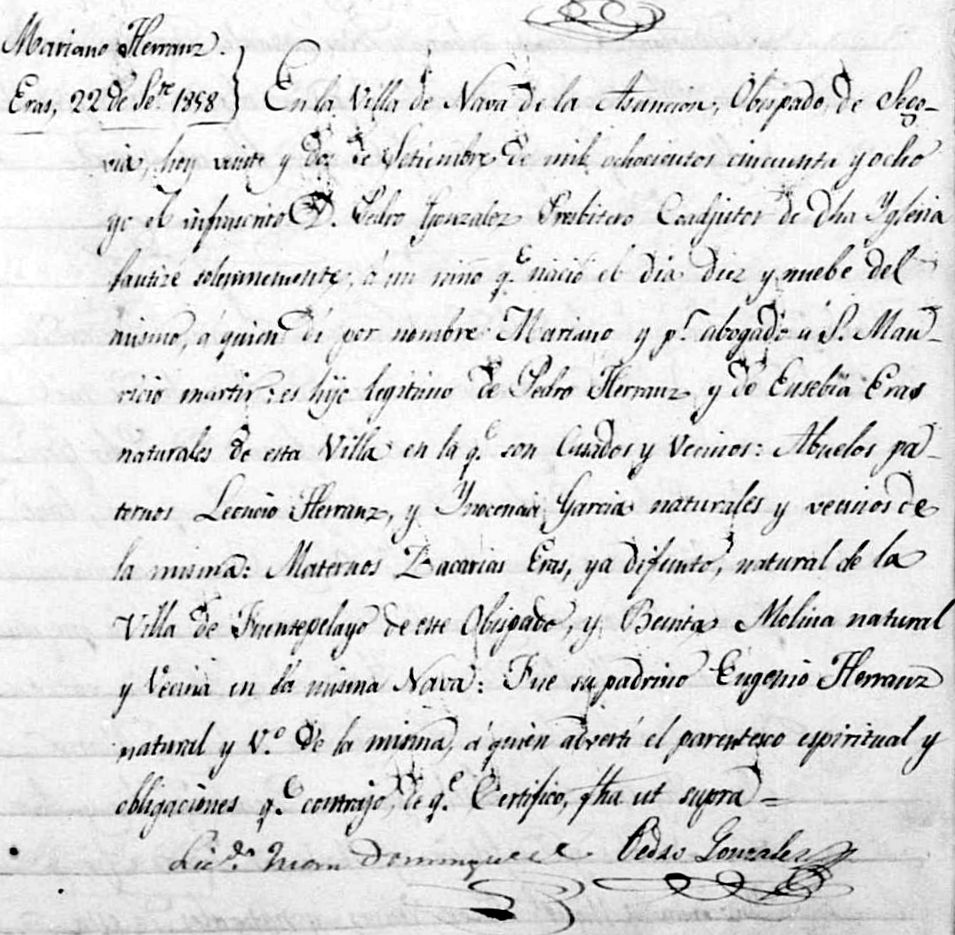 Mariano Herranz.
Eras, 22 de Se.te 1858 } En la Villa de Nava de la Asunción, Obispado de Sego-
via, hoy veinte y dos de Setiembre de mil ochocientos cincuenta y ocho
yo el infrascrito D. Pedro Gonzalez Presbitero Coadjutor de dha Yglesia
bautizé solemnemente, á un niño q.e nació el dia diez y nuebe del
mismo, á quien dí por nombre Mariano y p.r abogado á S. Mau-
ricio martir: es hijo legitimo de Pedro Herranz y de Eusebia Eras
naturales de esta Villa en la q.e son Casados y Vecinos: Abuelos pa-
ternos Leoncio Herranz, y Ynocencia Garcia naturales y vecinos de
la misma: Maternos Zacarias Eras, ya difunto, natural de la
Villa de Fuentepelayo de este Obispado, y Benita Molina natural
y Vecina en la misma Nava: Fue su padrino Eugenio Herranz
natural y V.o de la misma, á quien advertí el parentesco espiritual y
obligaciones q.e contrajo, de q.e Certifico, fha ut supra =
Licd.o Juan Dominguez Pedro Gonzalez